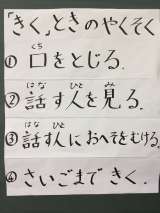 「きく」ときのやくそく
① 口をとじる。
くち
② 話す人を見る。
はな ひと み
③ 話す人におへそをむける。
はな ひと
④ さいごまできく。